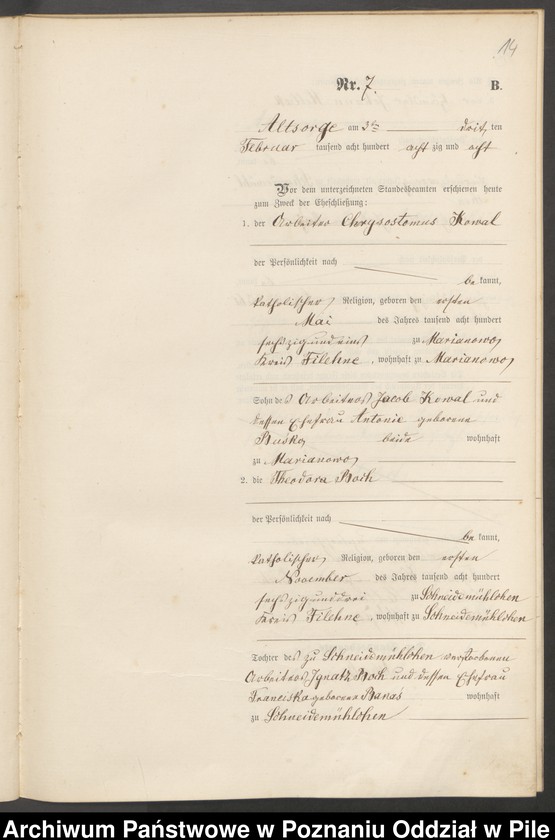 14
Nr. 7. B.
Altsorge am 3ten drit, ten
Februar tausend acht hundert acht zig und acht
Vor dem unterzeichneten Standesbeamten erschienen heute
zum Zweck der Eheschließung:
1. der Arbeiter Chrysostomus Kowal
der Persönlichkeit nach
be kannt,
katholischer Religion, geboren den ersten
Mai des Jahres tausend acht hundert
sechszig und eins zu Marianowo,
Kreis Filehne, wohnhaft zu Marianowo,
Sohn des Arbeiters Jacob Kowal und
dessen Ehefrau Antonie geborene
beide wohnhaft
zu Marianowo,
2. die Theodora
der Persönlichkeit nach
be kannt,
katholischer Religion, geboren den ersten
November des Jahres tausend acht hundert
sechszig und drei zu Schneidemühlchen
Kreis Filehne, wohnhaft zu Schneidemühlchen
Tochter des zu Schneidemühlchen verstorbenen
Arbeiters Ignatz und dessen Ehefrau
Franciska geborene Banas wohnhaft
zu Schneidemühlchen
Archiwum Państwowe w Poznaniu Oddział w Pile